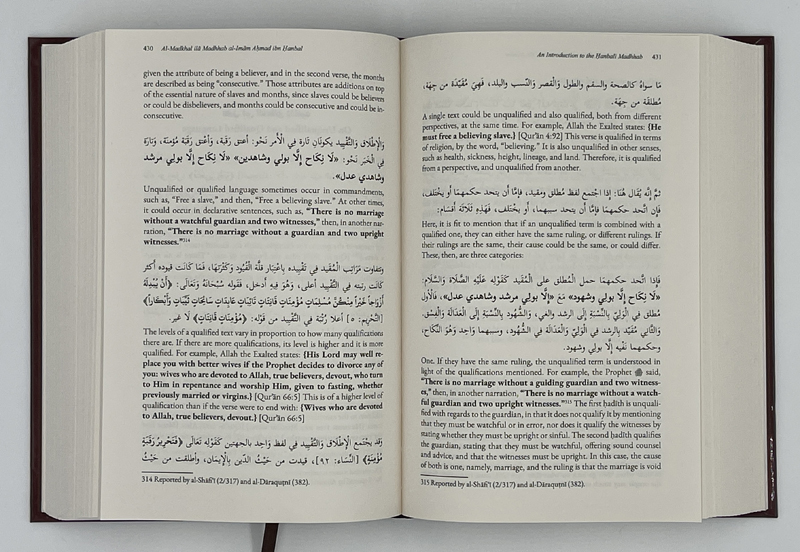 430 Al-Madkhal ilā Madhhab al-Imām Aḥmad ibn Ḥanbal
given the attribute of being a believer, and in the second verse, the months
are described as being "consecutive." Those attributes are additions on top
of the essential nature of slaves and months, since slaves could be believers
or could be disbelievers, and months could be consecutive and could be in-
consecutive.
وَالْإِطْلَاق وَالتَّقْيِيد يكونَانِ تَارَة فِي الْأَمر نَحْو: أعتق رَقَبَة، وَأعْتق رَقَبَة مُؤمنَة، وَتارَة
فِي الْخَبَر نَحْو: «لَا نِكَاح إِلَّا بولِي وشاهدين» «لَا نِكَاح إِلَّا بولِي مرشد
وشاهدي عدل».
Unqualified or qualified language sometimes occur in commandments,
such as, "Free a slave," and then, "Free a believing slave." At other times,
it could occur in declarative sentences, such as, "There is no marriage
without a watchful guardian and two witnesses," then, in another nar-
ration, "There is no marriage without a guardian and two upright
witnesses."314
وتتفاوت مَرَاتِب الْمُقَيد فِي تَقْيِيده بِاعْتِبَار قلَّة الْقُيُود وَكَثْرَتهَا، فَمَا كَانَت قيوده أَكثر
كَانَت رتبته فِي التَّقْيِيد أَعلَى، وَهُوَ فِيهِ أَدخل، فَقَوله سُبْحَانَهُ وَتَعَالَى: ﴿أَنْ يُبْدِلَهُ
أَزْوَاجًا خَيْرًا مِنْكُنَّ مُسْلِمَاتٍ مُؤْمِنَاتٍ قَانِتَاتٍ تَائِبَاتٍ عَابِدَاتٍ سَائِحَاتٍ ثَيِّبَاتٍ وَأَبْكَارًا﴾
[التَّحْرِيم: ٥] أَعلَا رُتْبَة فِي التَّقْيِيد من قَوْله: ﴿مُؤْمِنَاتٍ قَانِتَاتٍ﴾ لَا غير.
The levels of a qualified text vary in proportion to how many qualifications
there are. If there are more qualifications, its level is higher and it is more
qualified. For example, Allah the Exalted states: {His Lord may well re-
place you with better wives if the Prophet decides to divorce any of
you: wives who are devoted to Allah, true believers, devout, who turn
to Him in repentance and worship Him, given to fasting, whether
previously married or virgins.} [Qur'ān 66:5] This is of a higher level of
qualification than if the verse were to end with: {Wives who are devoted
to Allah, true believers, devout.} [Qur'ān 66:5]
وَقد يجْتَمع الْإِطْلَاق وَالتَّقْيِيد فِي لفظ وَاحِد بالجهتين كَقَوْلِه تَعَالَى ﴿فَتَحْرِيرُ رَقَبَةٍ
مُؤْمِنَةٍ﴾ [النِّسَاء: ٩٢]، قيدت من حَيْثُ الدّين بِالْإِيمَان، وأطلقت من حَيْثُ
314 Reported by al-Shāfi'ī (2/317) and al-Dāraquṭnī (382).
An Introduction to the Ḥanbalī Madhhab 431
مَا سواهُ كالصحة والسقم والطول وَالْقصر وَالنّسب والبلد، فَهِيَ مُقَيّدَة من جِهَة،
مُطلقَة من جِهَة.
A single text could be unqualified and also qualified, both from different
perspectives, at the same time. For example, Allah the Exalted states: {He
must free a believing slave.} [Qur'ān 4:92] This verse is qualified in terms
of religion, by the word, "believing." It is also unqualified in other senses,
such as health, sickness, height, lineage, and land. Therefore, it is qualified
from a perspective, and unqualified from another.
ثمَّ إِنَّه يُقَال هُنَا: إِذا اجْتمع لفظ مُطلق ومقيد، فإمَّا أَن يتحد حكمهمَا أَو يخْتَلف،
فَإِن اتَّحد حكمهمَا فإمَّا أَن يتحد سببهما، أَو يخْتَلف، فَهَذِهِ ثَلَاثَة أَقسَام:
Here, it is fit to mention that if an unqualified term is combined with a
qualified one, they can either have the same ruling, or different rulings. If
their rulings are the same, their cause could be the same, or could differ.
These, then, are three categories:
فَإِذا اتَّحد حكمهمَا حمل الْمُطلق على الْمُقَيد كَقَوْلِه عَلَيْهِ الصَّلَاة وَالسَّلَام:
«لَا نِكَاح إِلَّا بولِي وشهود» مَعَ «إِلَّا بولِي مرشد وشاهدي عدل»، فَالْأول
مُطلق فِي الْوَلِيّ بِالنِّسْبَةِ إِلَى الرشد والغي، وَالشُّهُود بِالنِّسْبَةِ إِلَى الْعَدَالَة وَالْفِسْق،
وَالثَّانِي مُقَيّد بِالرشد فِي الْوَلِيّ وَالْعَدَالَة فِي الشُّهُود، وسببهما وَاحِد وَهُوَ النِّكَاح،
وحكمهما نَفْيه إِلَّا بولِي وشهود.
One. If they have the same ruling, the unqualified term is understood in
light of the qualifications mentioned. For example, the Prophet ﷺ said,
"There is no marriage without a guiding guardian and two witness-
es," then, in another narration, "There is no marriage without a watch-
ful guardian and two upright witnesses."315 The first ḥadīth is unquali-
fied with regards to the guardian, in that it does not qualify it by mentioning
that they must be watchful or in error, nor does it qualify the witnesses by
stating whether they must be upright or sinful. The second ḥadīth qualifies
the guardian, stating that they must be watchful, offering sound counsel
and advice, and that the witnesses must be upright. In this case, the cause
of both is one, namely, marriage, and the ruling is that the marriage is void
315 Reported by al-Shāfi'ī (2/317) and al-Dāraquṭnī (382).